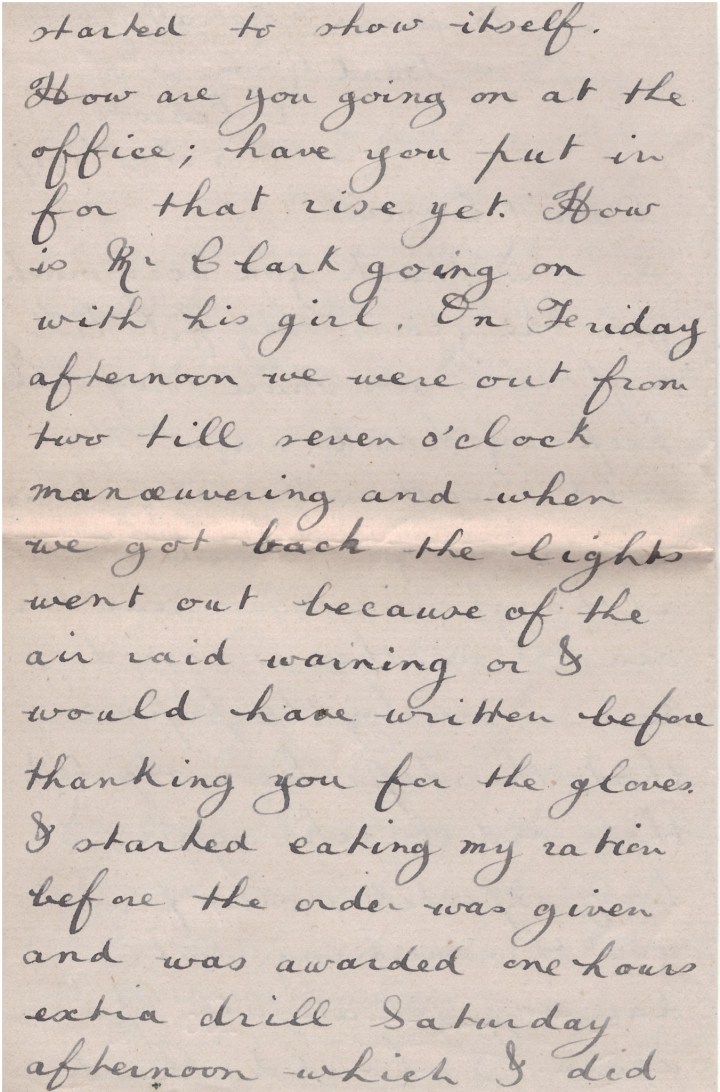 started to show itself.
How are you going on at the
office; have you put in
for that rise yet. How
is Mr Clark going on
with his girl. On Friday
afternoon we were out from
two till seven o'clock
manœuvering and when
we got back the lights
went out because of the
air raid warning or I
would have written before
thanking you for the gloves.
I started eating my ration
before the order was given
and was awarded one hours
extra drill Saturday
afternoon which I did